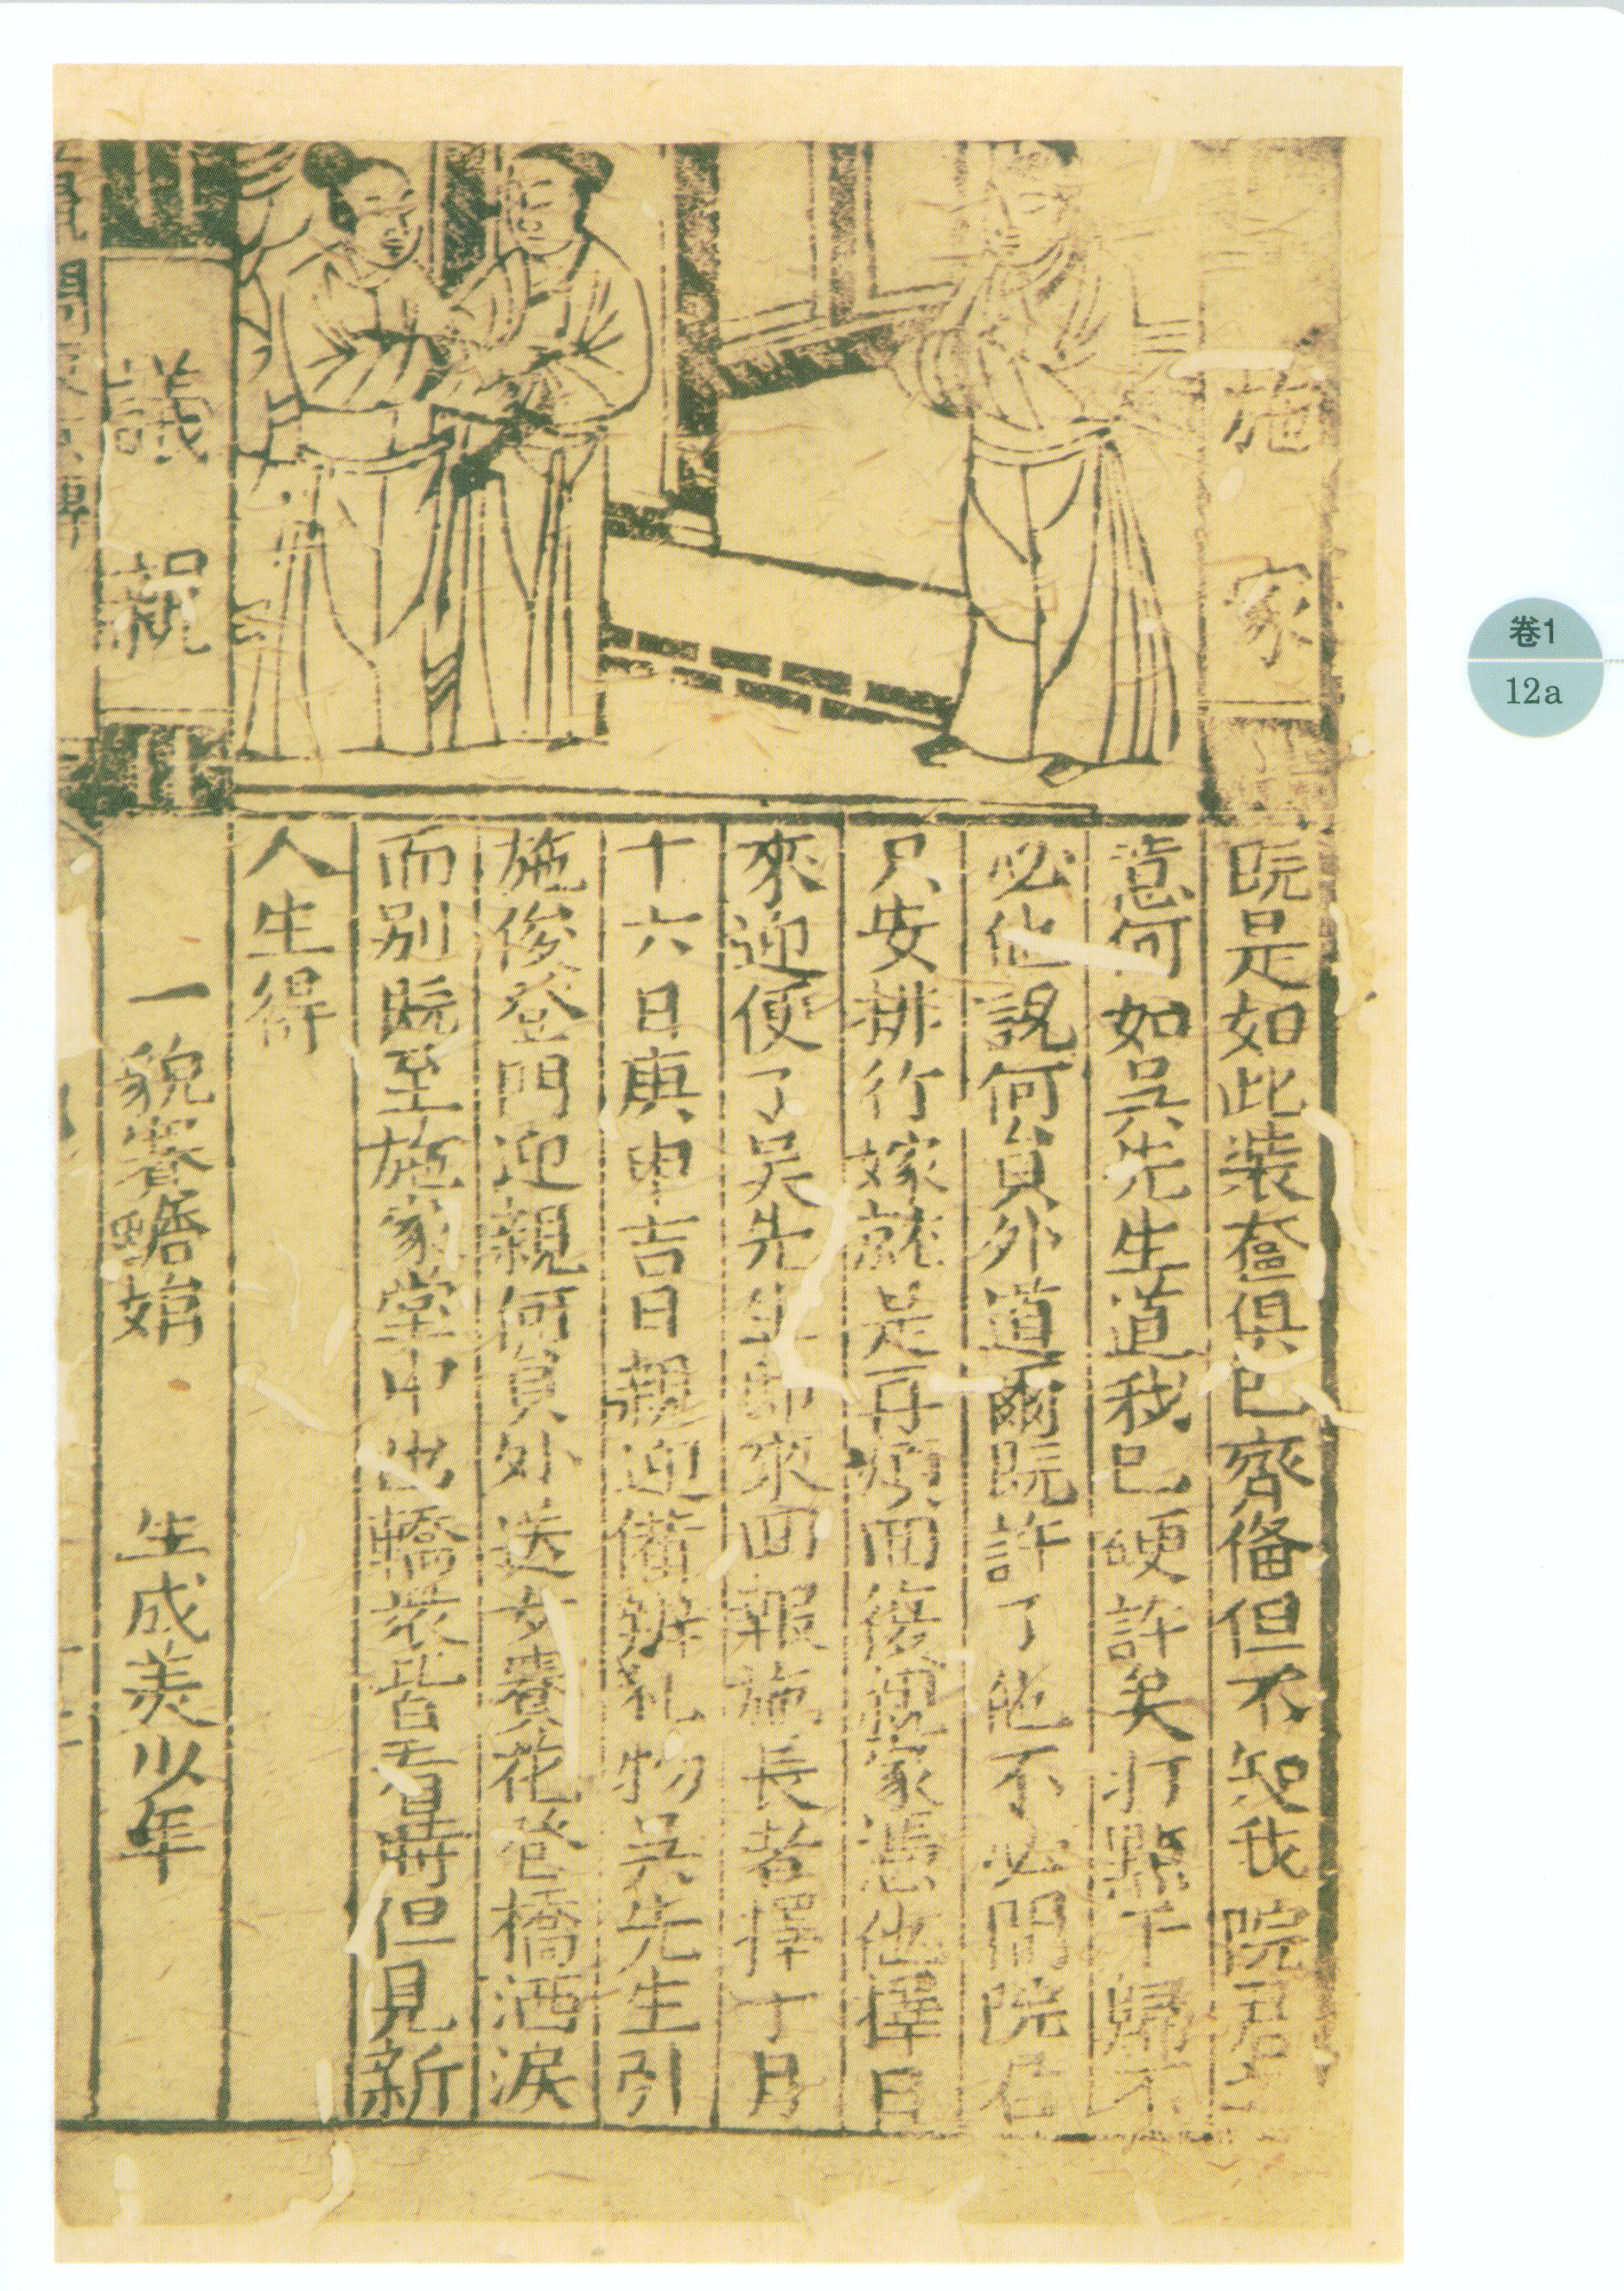 施家
議親
既是如此裝奩俱已齊俻但不知我院君之
意何如吳先生道我已硬許矣打點于歸不
必他説何貟外道爾既許了他不必問院君
只安排行嫁就是再煩回復親家憑他擇日
來迎便了吳先生即來回報施長者擇十月
十六日庚申吉日親迎備辦礼物吳先生引
施俊登門迎親何貟外送女賫花登橋洒淚
而别既至施家堂中出轎衆皆看時但見新
人生得
一貌賽嬋娟
生成羙少年
卷1
12a